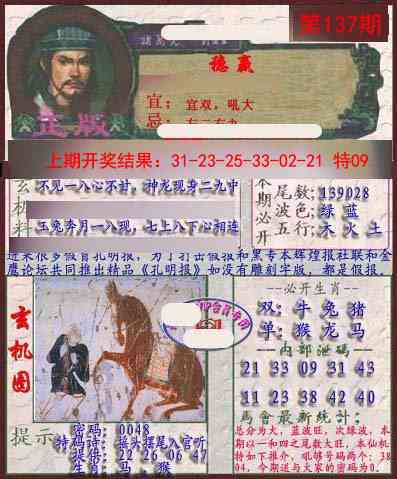 第137期
稳赢
宜：宜双，吼大
忌：
正版
上期开奖结果：31-23-25-33-02-21 特09
玄机料
不见一八心不甘，神龙现身二九中
玉兔奔月一八现，七上八下心相连
本期必开
尾数:139028
波色:绿 蓝
五行:木 火 土
近来很多假冒孔明报，为了打击假报和黑专本辉煌报社联和金
鹰论坛共同推出精品《孔明报》如没有雕刻字版，都是假报。
玄机图
必开生肖
双:牛 兔 猪
单:猴 龙 马
内部泄码
21 33 09 31 43
11 23 38 42 40
马會最新統计:
总分为大，蓝波旺，次绿波，本
期以一和四之尾数大旺，本仙机
特如下推介，吼够号码两个：38
04，今期送与大家的密码为0。
提示
密码：0048
特码诗：接头摆尾入官听
提供：22 26 06 47
生肖：马，猴